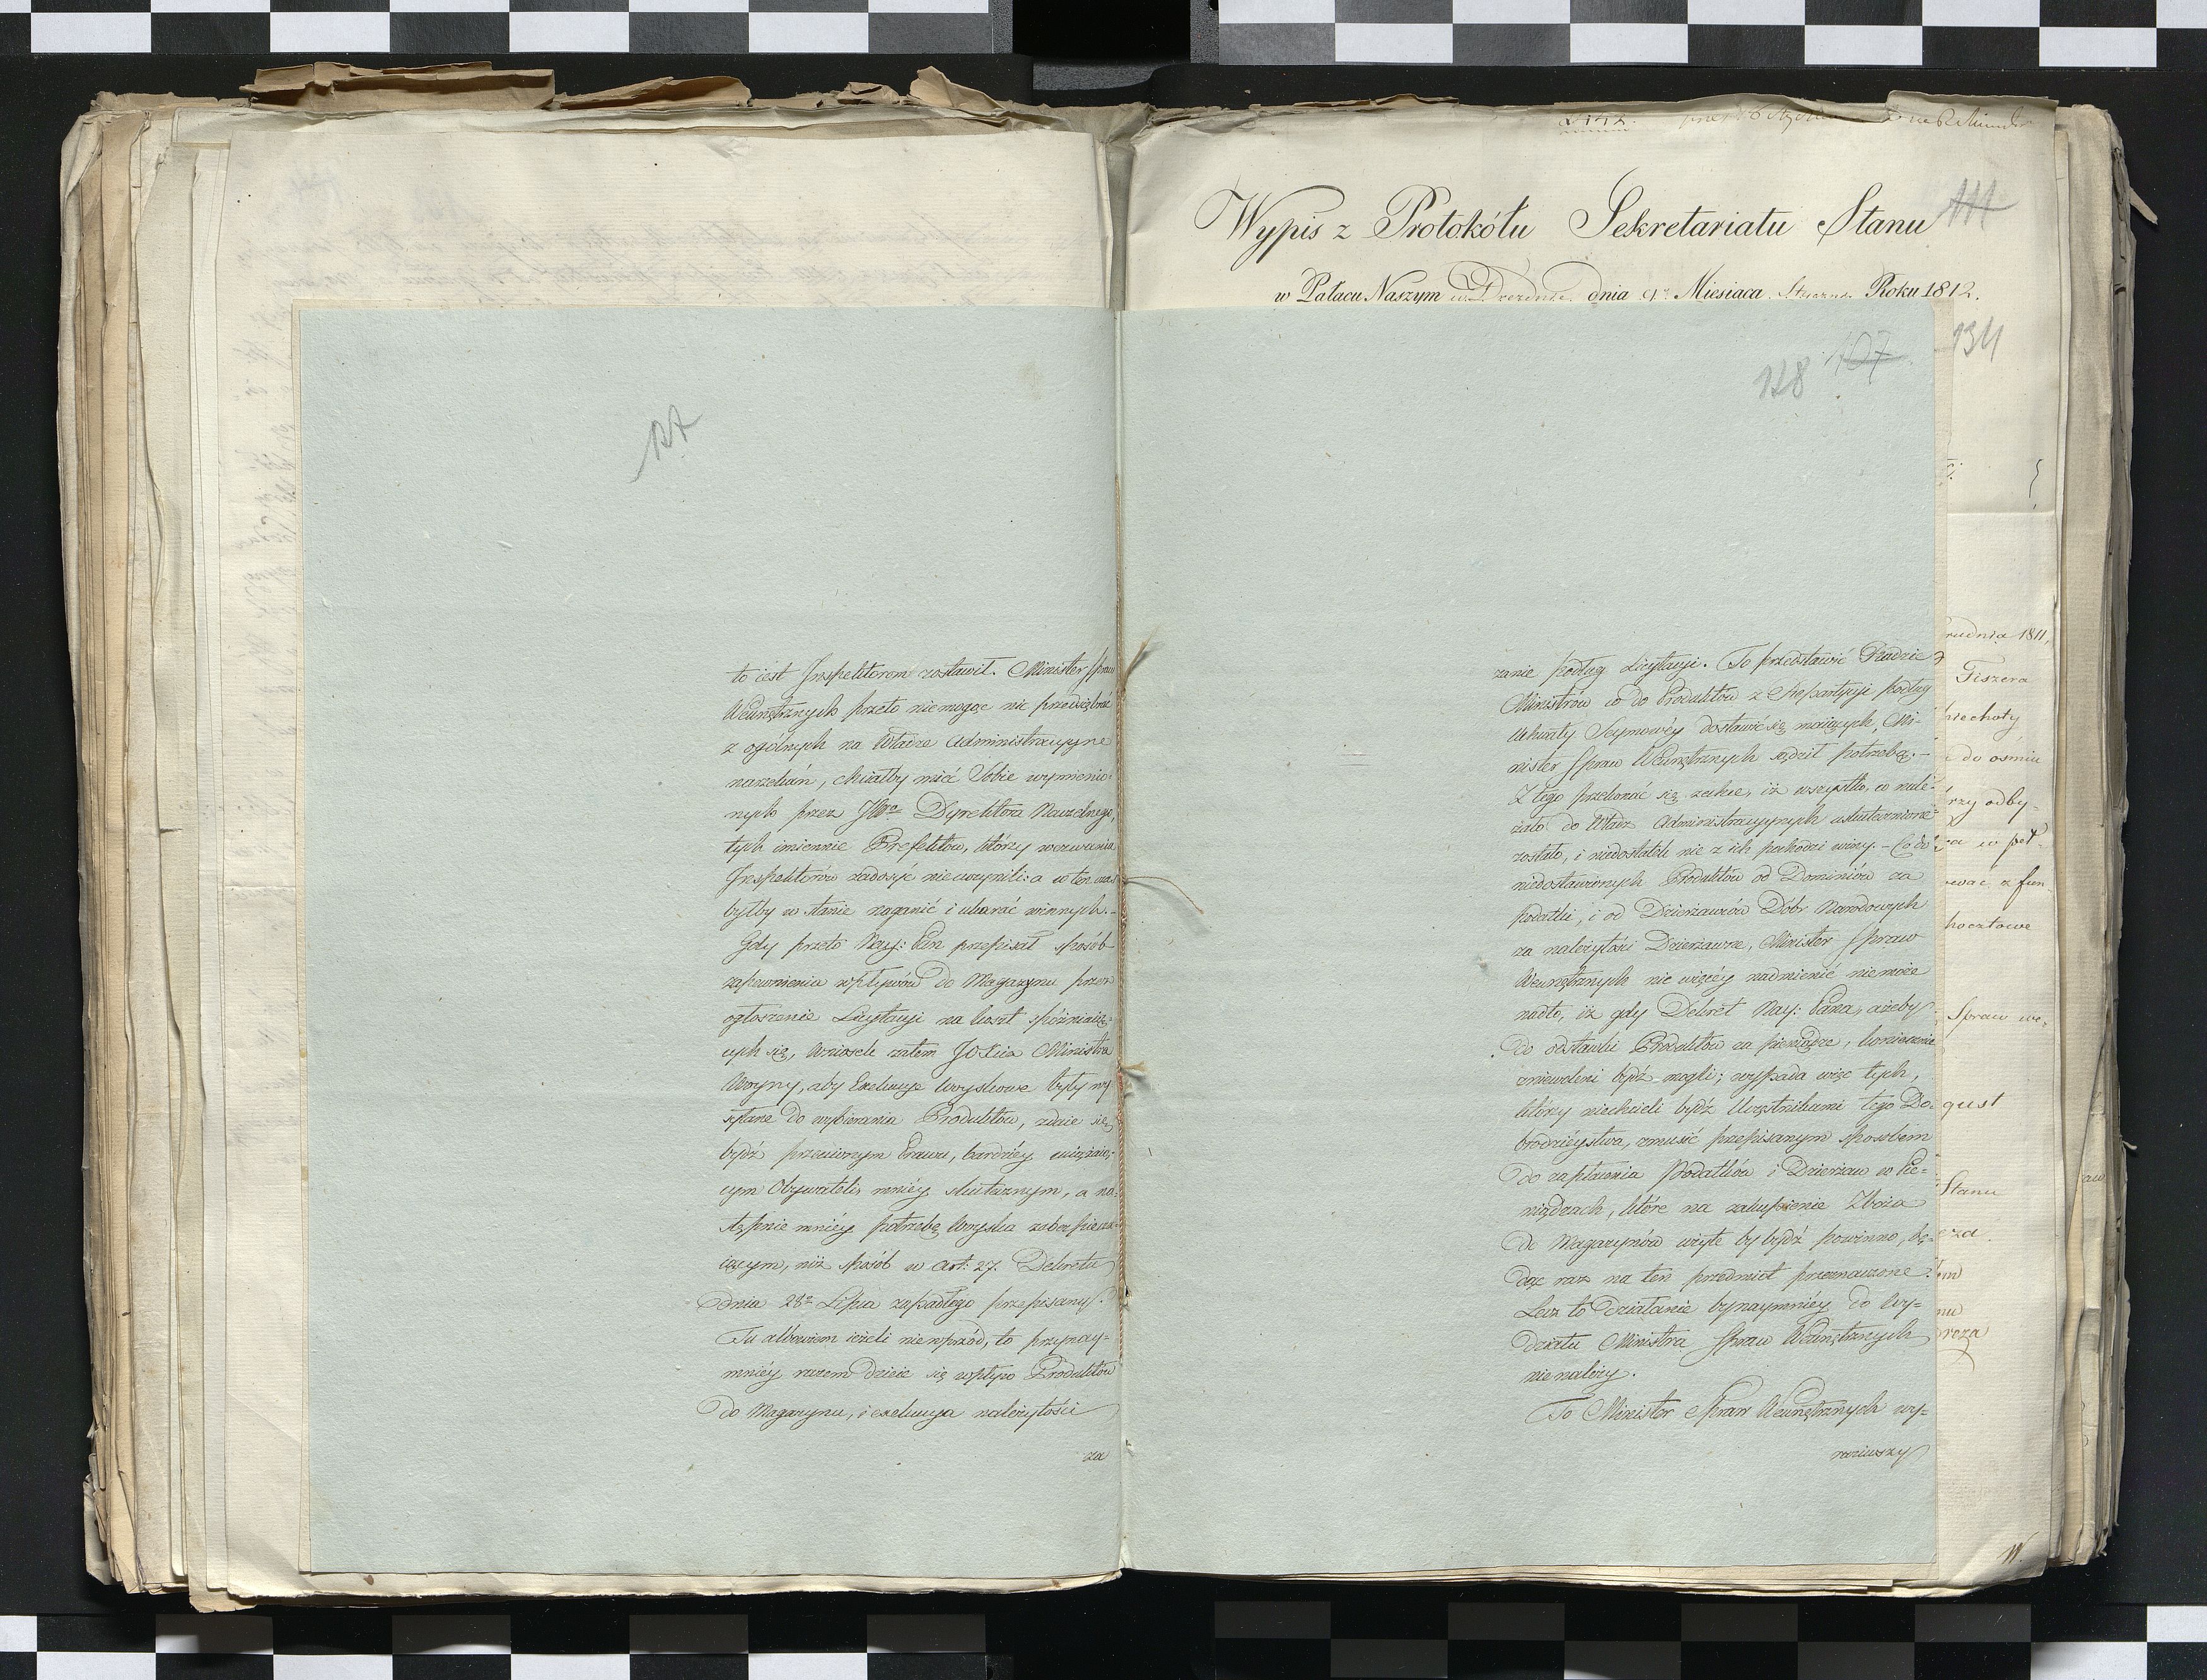 127
to iest Inspektorom zostawił. Minister Spraw
Wewnętrznych przeto niemogąc nic przedsiębrać
z ogólnych na Władze Administracyyne
narzekań, chciałby mieć Sobie wymienio-
nych przez JW° Dyrektora Naczelnego,
tych imiennie Prefektów, którzy wezwania
Inspektorów zadosyć nieuczynili: a w ten czas
byłby w stanie naganić i ukarać winnych. -
Gdy przeto Nay: Pan przepisał sposób
zapewnienia wpływów do Magazynu przez
ogłoszenie Licytacyi na koszt spóźniaią-
cych się, wniosek zatem JO Xcia Ministra
Woyny, aby Exekucye woyskowe były wy
syłane do wybierania Produktów, zdaie się
bydź przeciwnym Prawu, bardziey uciążaią-
cym Obywateli, mniéy skutecznym, a na-
stępnie mniéy potrzebę Woyska zabezpiecza-
iącym, niż sposób w Art: 27. Dekretu
dnia 28° Lipca zapadłego przepisany.
Tu albowiem ieżeli nie wprzód, to przynay-
mniéy razem dzieie się wpływ Produktów
do Magazynu, i exekucya należytości
za
Wypis z Protokółu Sekretariatu Stanu
w Pałacu Naszym w Dreznie dnia 9° Miesiąca Stycznia Roku 1812.
134
128 107
zanie podług Licytacyi. To przedstawić Radzie
Ministrów co do Produktów z Repartycyi podług
Uchwały Seymowéy dostawić się maiących, Mi-
nister Spraw Wewnętrznych sądził potrzebą. -
Z tego przekonać się zechce, iż wszystko, co nale-
żało do Władz Administracyynych uskutecznione
zostało, i niedostatek nie z ich pochodzi winy. - Co do
niedostawionych Produktów od Dominiów za
podatki, i od Dzierżawców Dóbr Narodowych
za należytości Dzierżawne, Minister Spraw
Wewnętrznych nic więcéy nadmienić niemoże
nadto, iż gdy Dekret Nay: Pana, ażeby
do odstawki Produktów za pieniądze, koniecznie
zniewoleni bydź mogli; wypada więc tych,
którzy niechcieli bydź Uczęstnikami tego Do-
brodzieystwa, zmusić przepisanym sposobem
do zapłacenia Podatków i Dzierżaw w Pie-
niądzach, które na zakupienie Zboża
do Magazynów użyte by bydź powinno, bę-
dąc raz na ten przedmiot przeznaczone.
Lecz to działanie bynaymniéy do Wy-
działu Ministra Spraw Wewnętrznych
nienależy.
To Minister Spraw Wewnętrznych wy-
raziwszy
rudnia 1811,
Fiszera
piechoty
do ośmiu
rzy odby-
w peł-
z fun
pocztowe
Spraw we,
gust
Stanu
oza